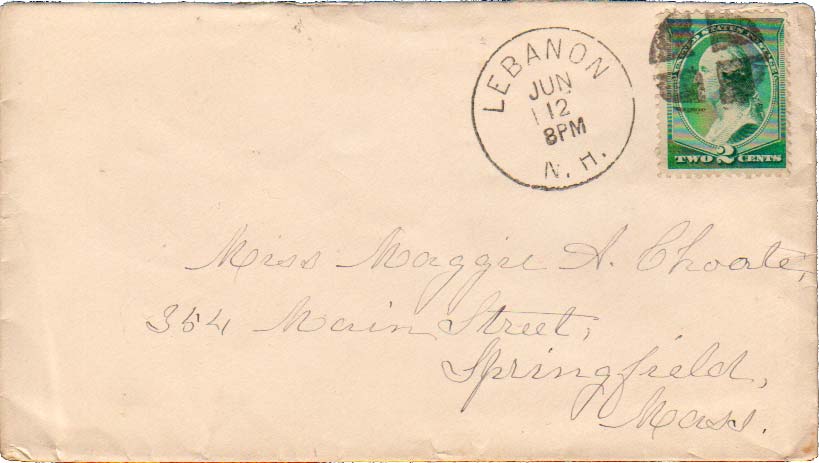 LEBANON
JUN
12
8PM
N. H.
TWO 2 CENTS
Miss Maggie A. Choate,
354 Main Street,
Springfield,
Mass.